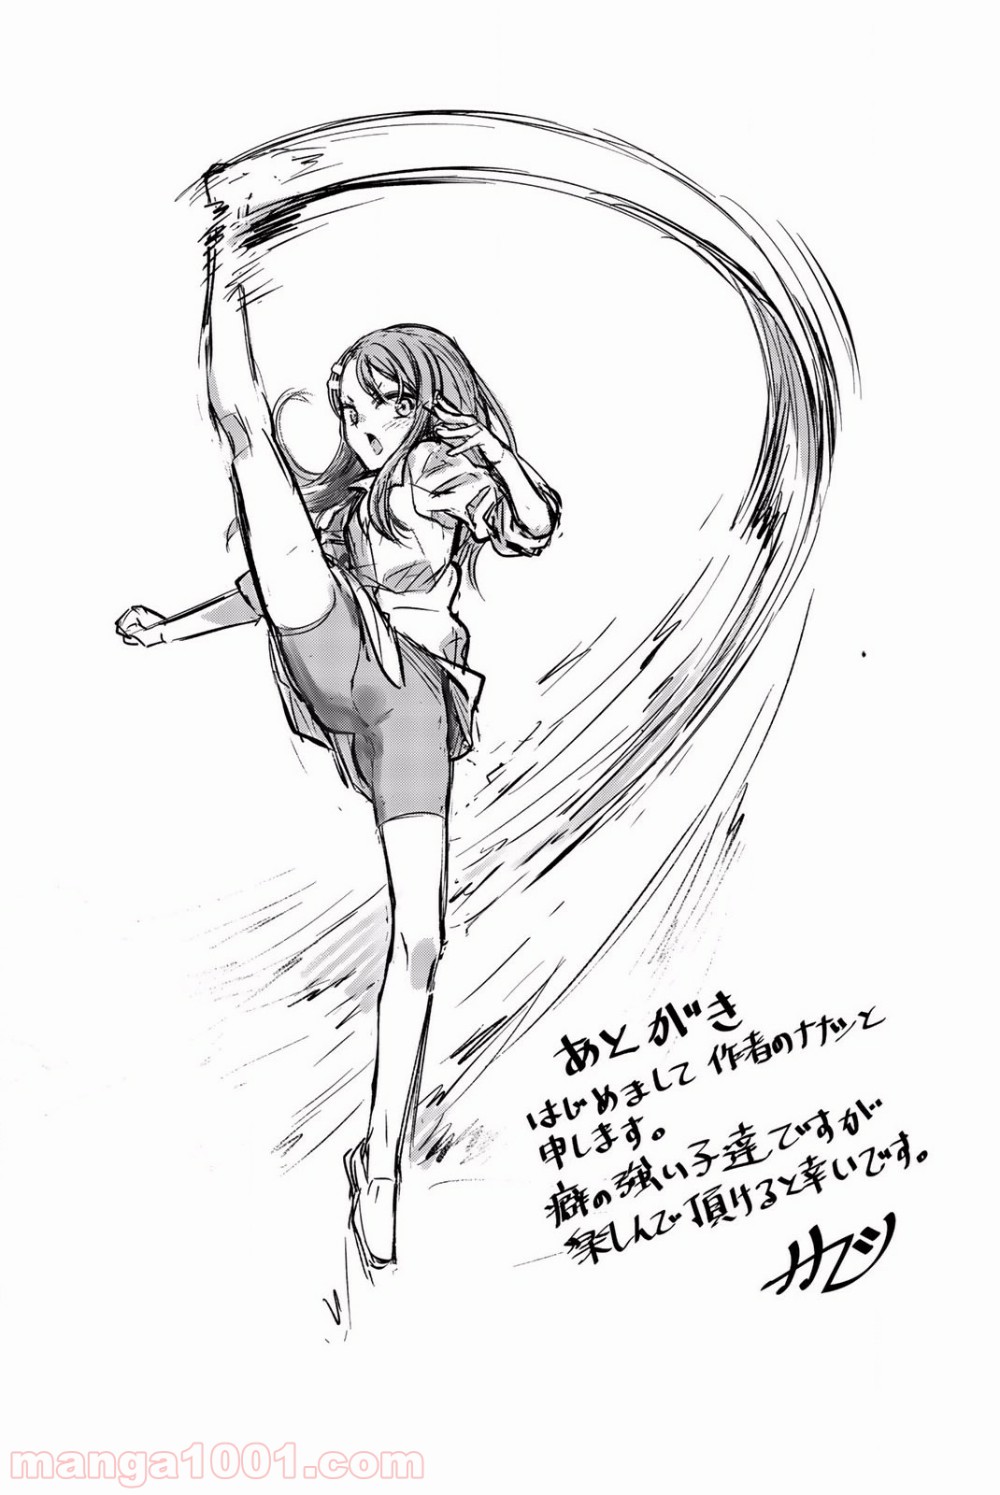 あとがき
はじめまして 作者のナナツと
申します。
癖の強い子達ですが
楽しんで頂けると幸いです。
ナナツ
manga1001.com